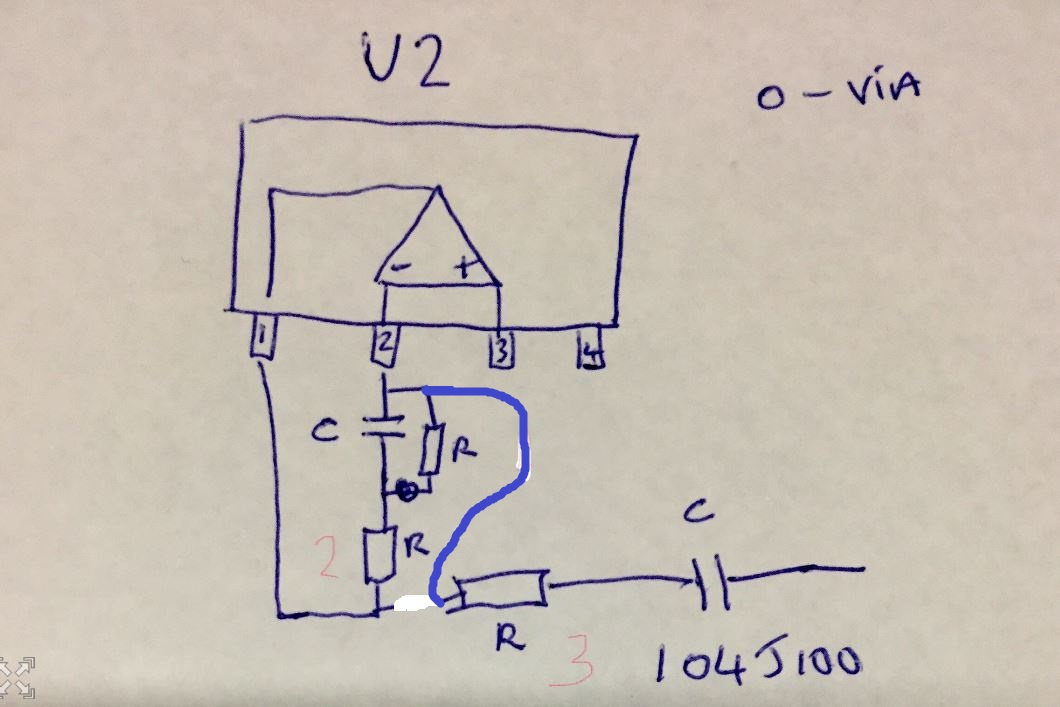 U2
0 - ViA
- +
1 2 3 4
C R
2 R
C
R 3
104J100